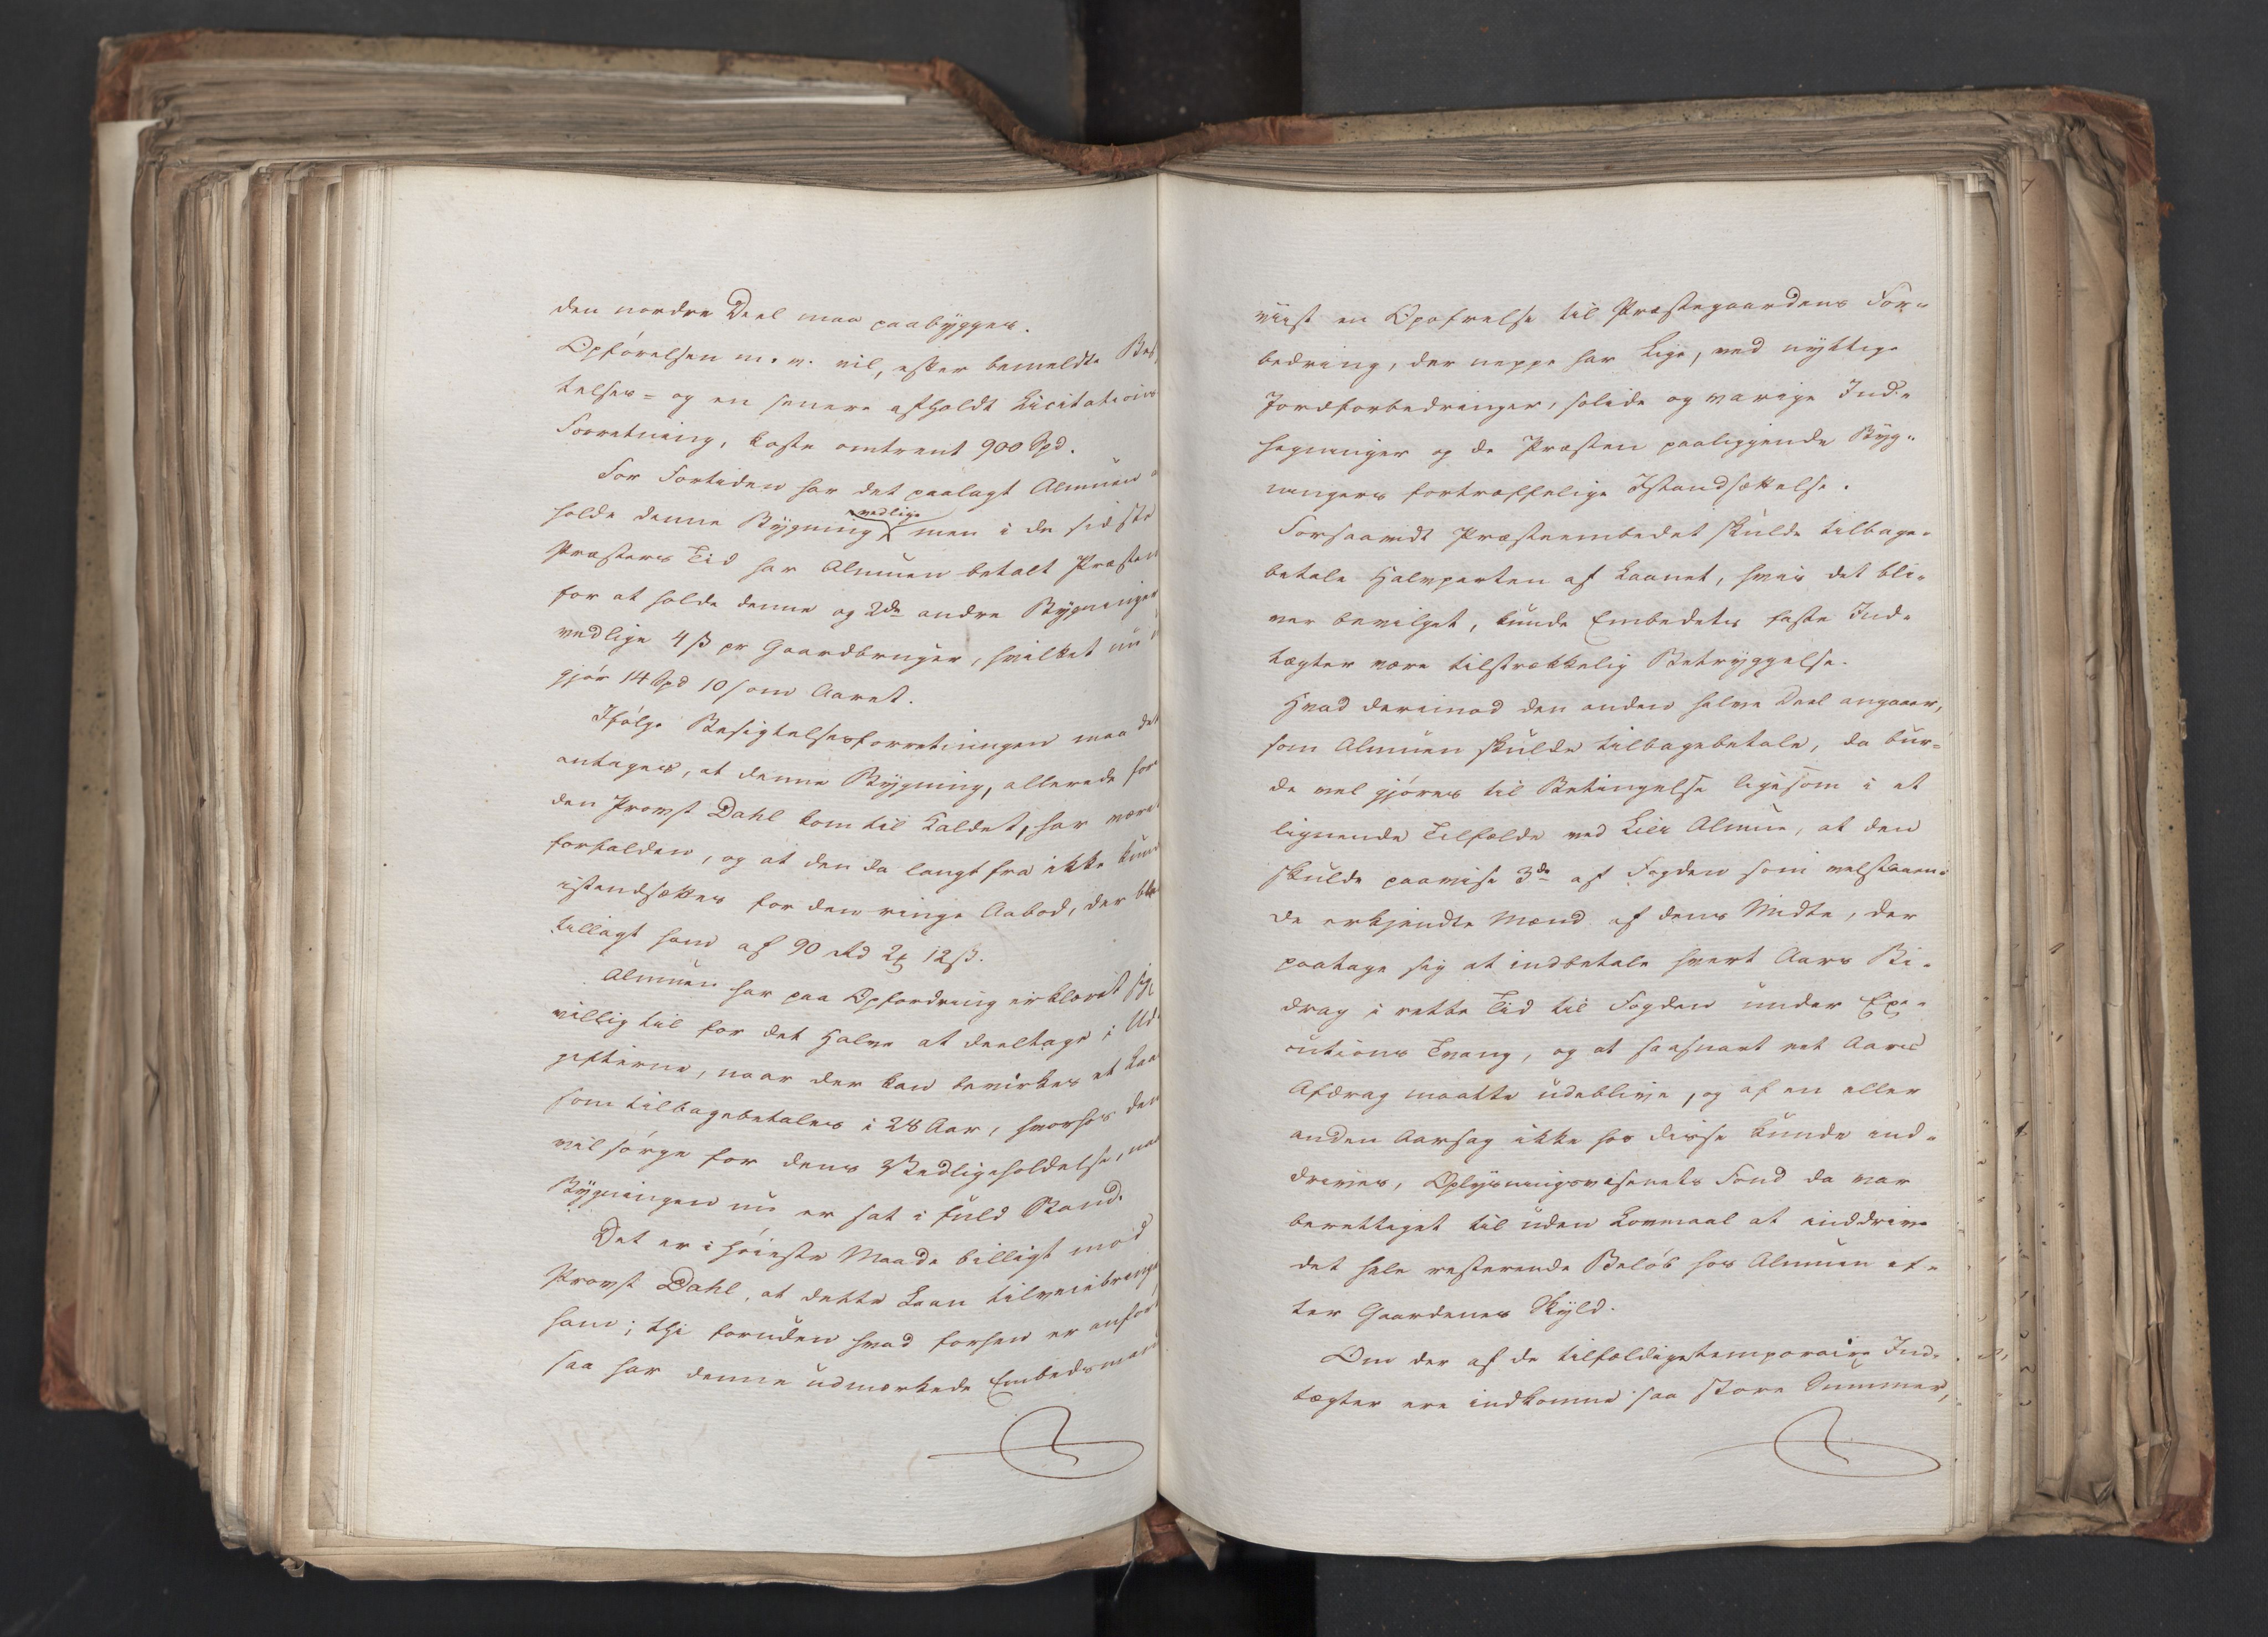 den nordre Deel maa paabygges.
Opførelsen m. v. vil, efter bemeldte Bes
telses- og en senere afholdt Licitations
Forretning, koste omtrent 900 Spd.
For Fortiden har det paalagt Almuen a
holde denne Bygning vedlige men i de sidste
Præsters Tid har Almuen betalt Præsten
for at holde denne og 2de andre Bygninger
vedlige 4 ß pr Gaardbruger, hvilket nu
gjør 14 Spd 10 ß om Aaret.
Ifølge Besigtelsesforretningen maa det
antages, at denne Bygning, allerede før
den Provst Dahl kom til Kaldet, har været
forfalden, og at den da langt fra ikke kun
istandsættes for den ringe Aabod, der ble
tillagt ham af 90 Rd 2 ₰ 12 ß.
Almuen har paa Opfordring erklæret sig
villig til for det Halve at deeltage i Ud
gifterne, naar der kan bevirkes et Laa
som tilbagebetales i 28 Aar, hvorhos den
vil sørge for dens Vedligeholdelse, naa
Bygningen nu er sat i fuld Stand.
Det er i høieste Maade billigt mod
Provst Dahl, at dette Laan tilveiebringe
ham; thi foruden hvad forhen er anført
saa har denne udmærkede Embedsmand
viist en Opofrelse til Præstegaardens For-
bedring, der neppe har Lige, ved nyttige
Jordforbedringer, solide og varige Ind-
hegninger og de Præsten paaliggende Byg-
ningers fortræffelige Istandsættelse.
Forsaavidt Præsteembedet skulde tilbage-
betale Halvparten af Laanet, hvis det bli-
ver bevilget, kunde Embedets faste Ind-
tægter være tilstrækkelig Betryggelse.
Hvad derimod den anden halve Deel angaaer,
som Almuen skulde tilbagebetale, da bur-
de vel gjøres til Betingelse ligesom i et
lignende Tilfælde ved Lier Almue, at den
skulde paavise 3de af Fogden som velstaaen-
de erkjendte Mænd af dens Midte, der
paatage sig at indbetale hvert Aars Bi-
drag i rette Tid til Fogden under Exe-
cutions Tvang, og at saasnart eet Aars
Afdrag maatte udeblive, og af en eller
anden Aarsag ikke hos disse kunde ind-
drives, Oplysningsvæsenets Fond da var
berettiget til uden Lovmaal at inddrive
det hele resterende Beløb hos Almuen ef-
ter Gaardenes Skyld.
Om der af de tilfældige temporaire Ind-
tægter ere indkomne saa store Summer,